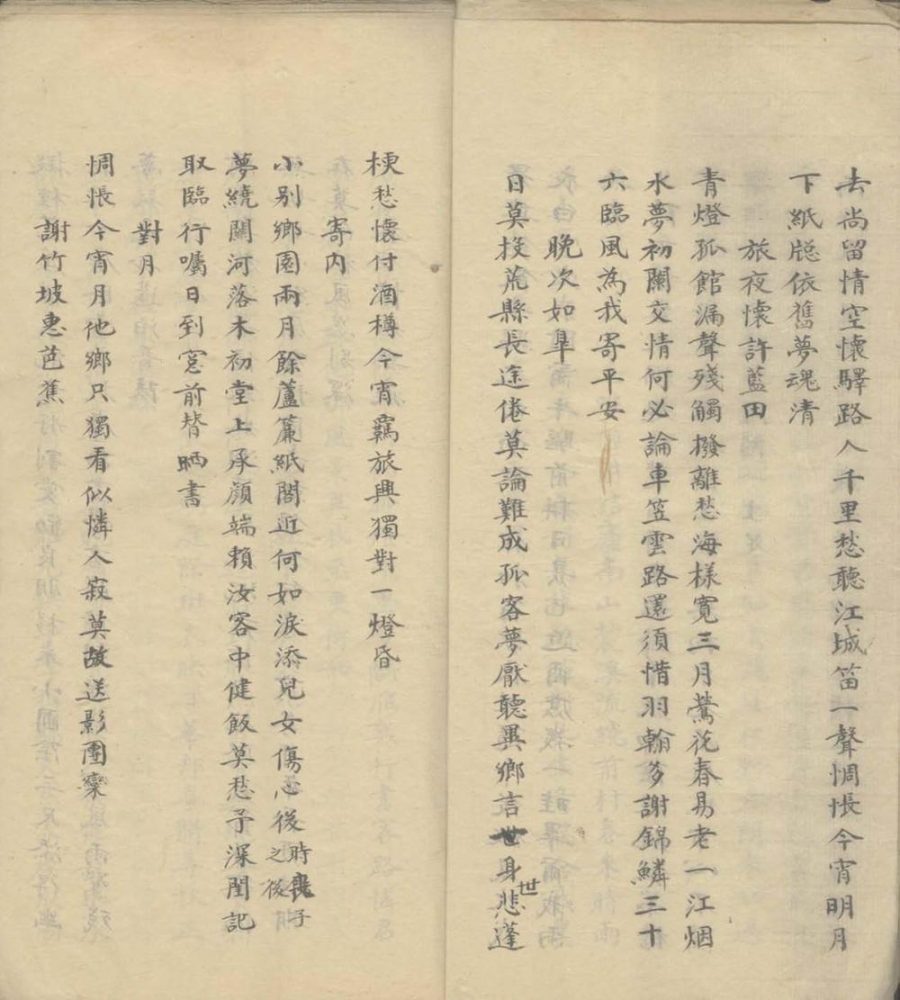 去尚留情空懷驛路人千里愁聽江城笛一聲惆悵今宵明月
下紙牕依舊夢魂清
旅夜懷許藍田
青燈孤館漏聲殘觸撥離愁海樣寬三月鶯花春易老一江烟
水夢初闌交情何必論車笠雲路還須惜羽翰多謝錦鱗三十
六臨風為我寄平安
晚次如皐
日莫投荒縣長途倦莫論難成孤客夢厭聽異鄉言身世悲蓬
梗愁懷付酒樽今宵羈旅興獨對一燈昏
寄內
小别鄉園兩月餘蘆簾紙閣近何如淚添兒女傷心後時喪子之後
夢繞關河落木初堂上承顏端賴汝客中健飯莫愁予深閨記
取臨行囑日到窻前替晒書
對月
惆悵今宵月他鄉只獨看似憐人寂莫故送影團欒
謝竹坡惠芭蕉